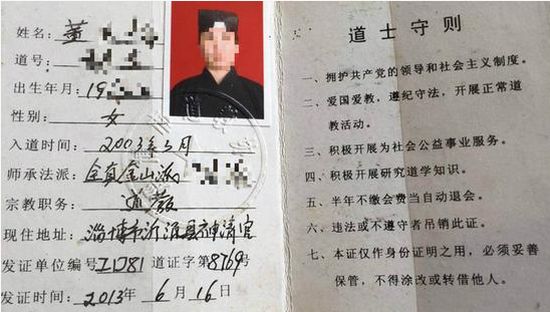 姓名：董
道号：
出生年月：19
性别：女
入道时间：2003年5月
师承法派：全真金山派
宗教职务：道教
现住地址：淄博市沂源县神清宫
发证单位编号ID81道证字第8769号
发证时间：2013年6月16日
道士守则
一、拥护共产党的领导和社会主义制度。
二、爱国爱教、遵纪守法，开展正常道
教活动。
三、积极开展为社会公益事业服务。
四、积极开展研究道学知识。
五、半年不缴会费当自动退会。
六、违法或不遵守者吊销此证。
七、本证仅作身份证明之用，必须妥善
保管，不得涂改或转借他人。